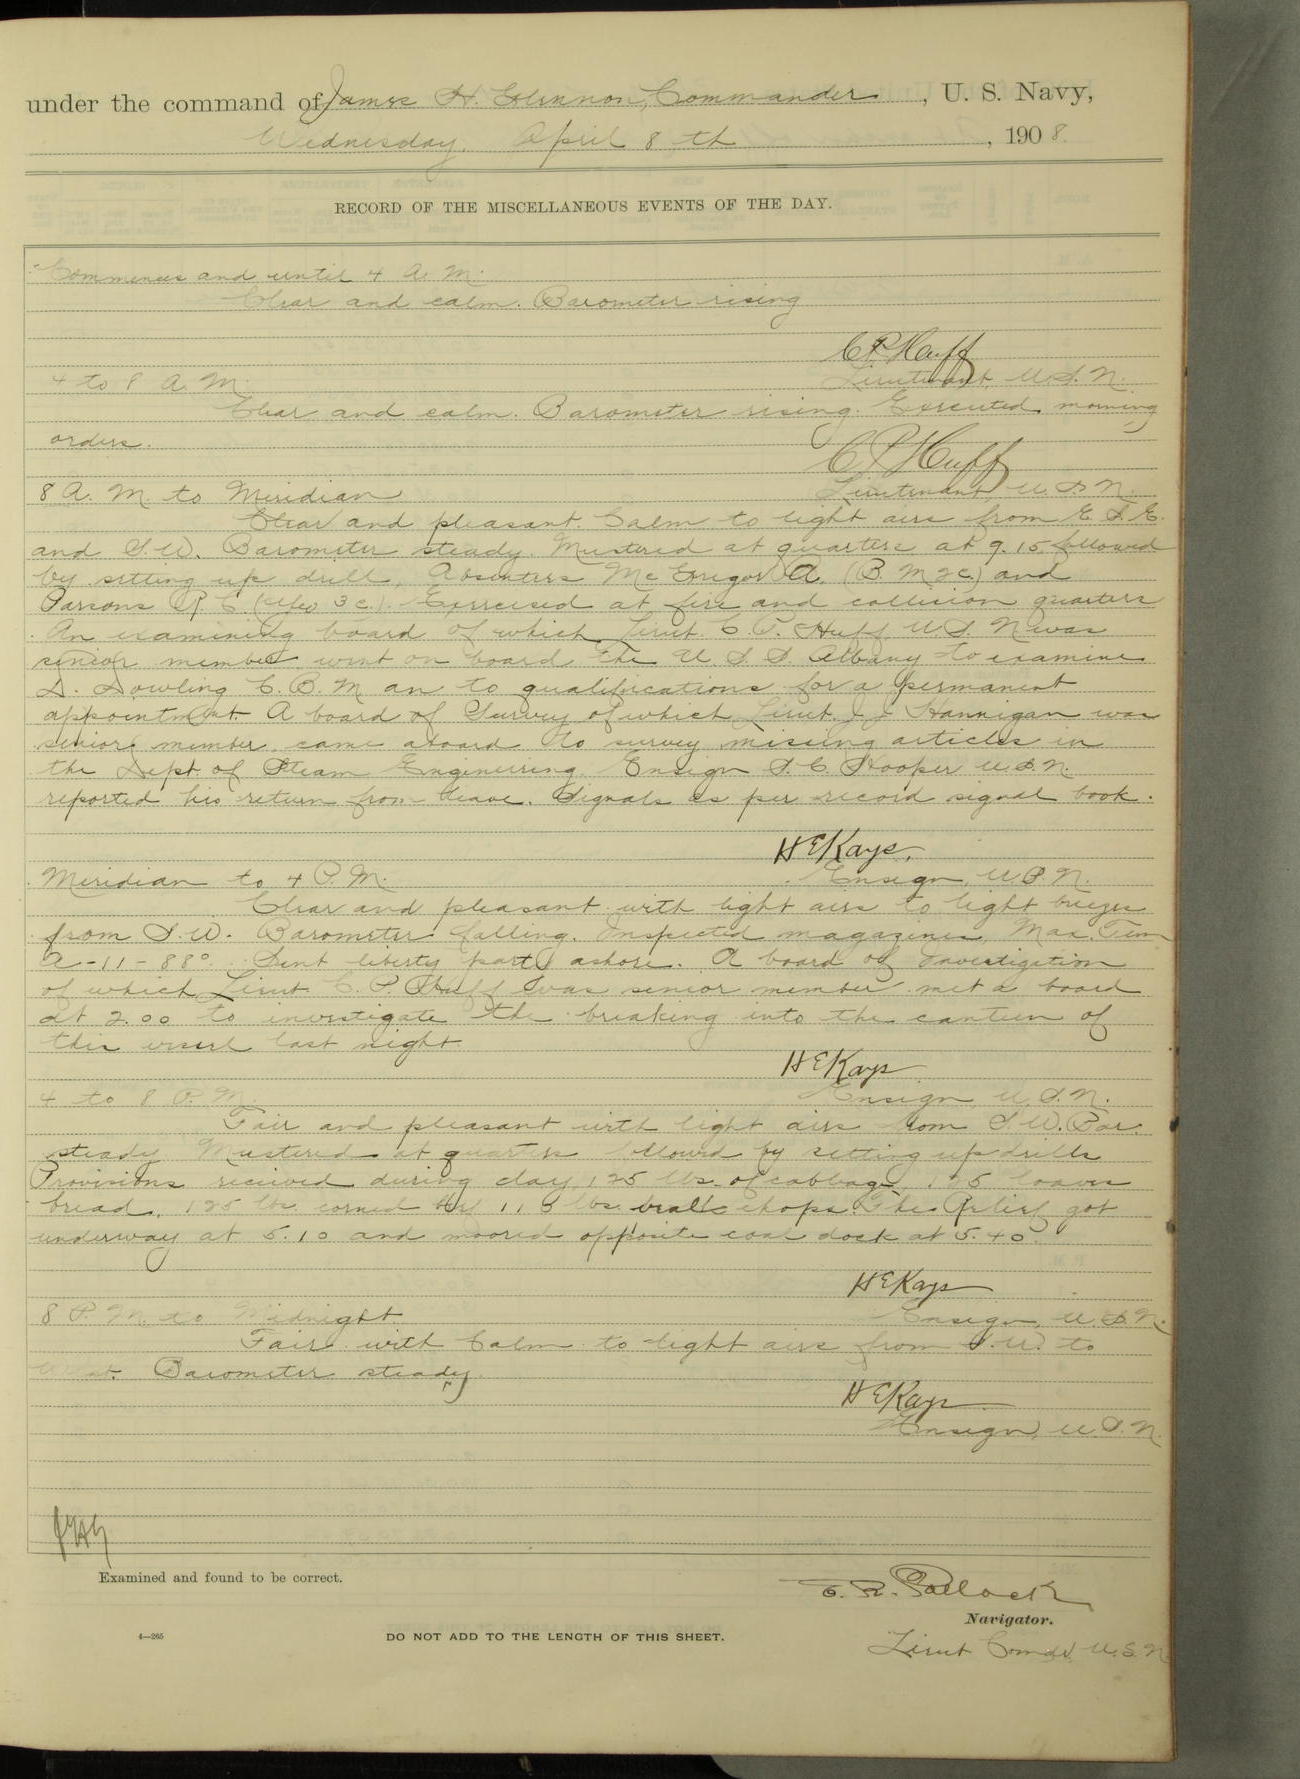 under the command of James H. Glennon, Commander, U. S. Navy,
Wednesday, April 8th, 1908.
RECORD OF THE MISCELLANEOUS EVENTS OF THE DAY.
Commences and until 4 A. M.
Clear and calm. Barometer rising
C P Huff
Lieutenant, U.S.N.
4 to 8 A. M.
Clear and calm. Barometer rising. Executed morning
orders.
C P Huff
Lieutenant, U.S.N.
8 A. M. to Meridian
Clear and pleasant. Calm to light airs from E. S. E.
and S.W. Barometer steady. Mustered at quarters at 9.15 followed
by setting up drill, Absentees McGregor A. (B. M 2c.) and
Parsons R. C. (Yeo 3c.). Exercised at fire and collision quarters
An examining board of which Lieut. C. P. Huff U.S.N. was
senior member went on board the U. S. S. Albany to examine
D. Dowling C. B. M an to qualifications for a permanent
appointment. A board of Survey of which Lieut. J. J. Hannigan was
senior member came aboard to survey missing articles in
the Dept. of Steam Engineering. Ensign S. C. Hooper U.S.N.
reported his return from leave. Signals as per record signal book.
H E Kays,
Ensign, U.S.N.
Meridian to 4 P. M.
Clear and pleasant with light airs to light breezes
from S.W. Barometer falling. Inspected magazines, Max. Tem
A-11-88°. Sent liberty party ashore. A board of Investigation
of which Lieut C. P. Huff was senior member met a board
at 2.00 to investigate the breaking into the canteen of
this vessel last night.
H E Kays
Ensign, U.S.N.
4 to 8 P. M.
Fair and pleasant with light airs from S.W. Bar.
steady. Mustered at quarters followed by setting up drills
Provisions received during day, 125 lbs. of cabbage, 125 loaves
bread, 125 lbs. corned beef 118 lbs. veal chops. The Relief got
underway at 5.10 and moored opposite coal dock at 5.40.
H E Kays
Ensign, U.S.N.
8 P. M. to Midnight
Fair with Calm to light airs from S.W. to
West. Barometer steady.
H E Kays
Ensign, U.S.N.
JHG
Examined and found to be correct.
E. R. Pollock
Navigator.
4—265
DO NOT ADD TO THE LENGTH OF THIS SHEET.
Lieut Comdr. U.S.N